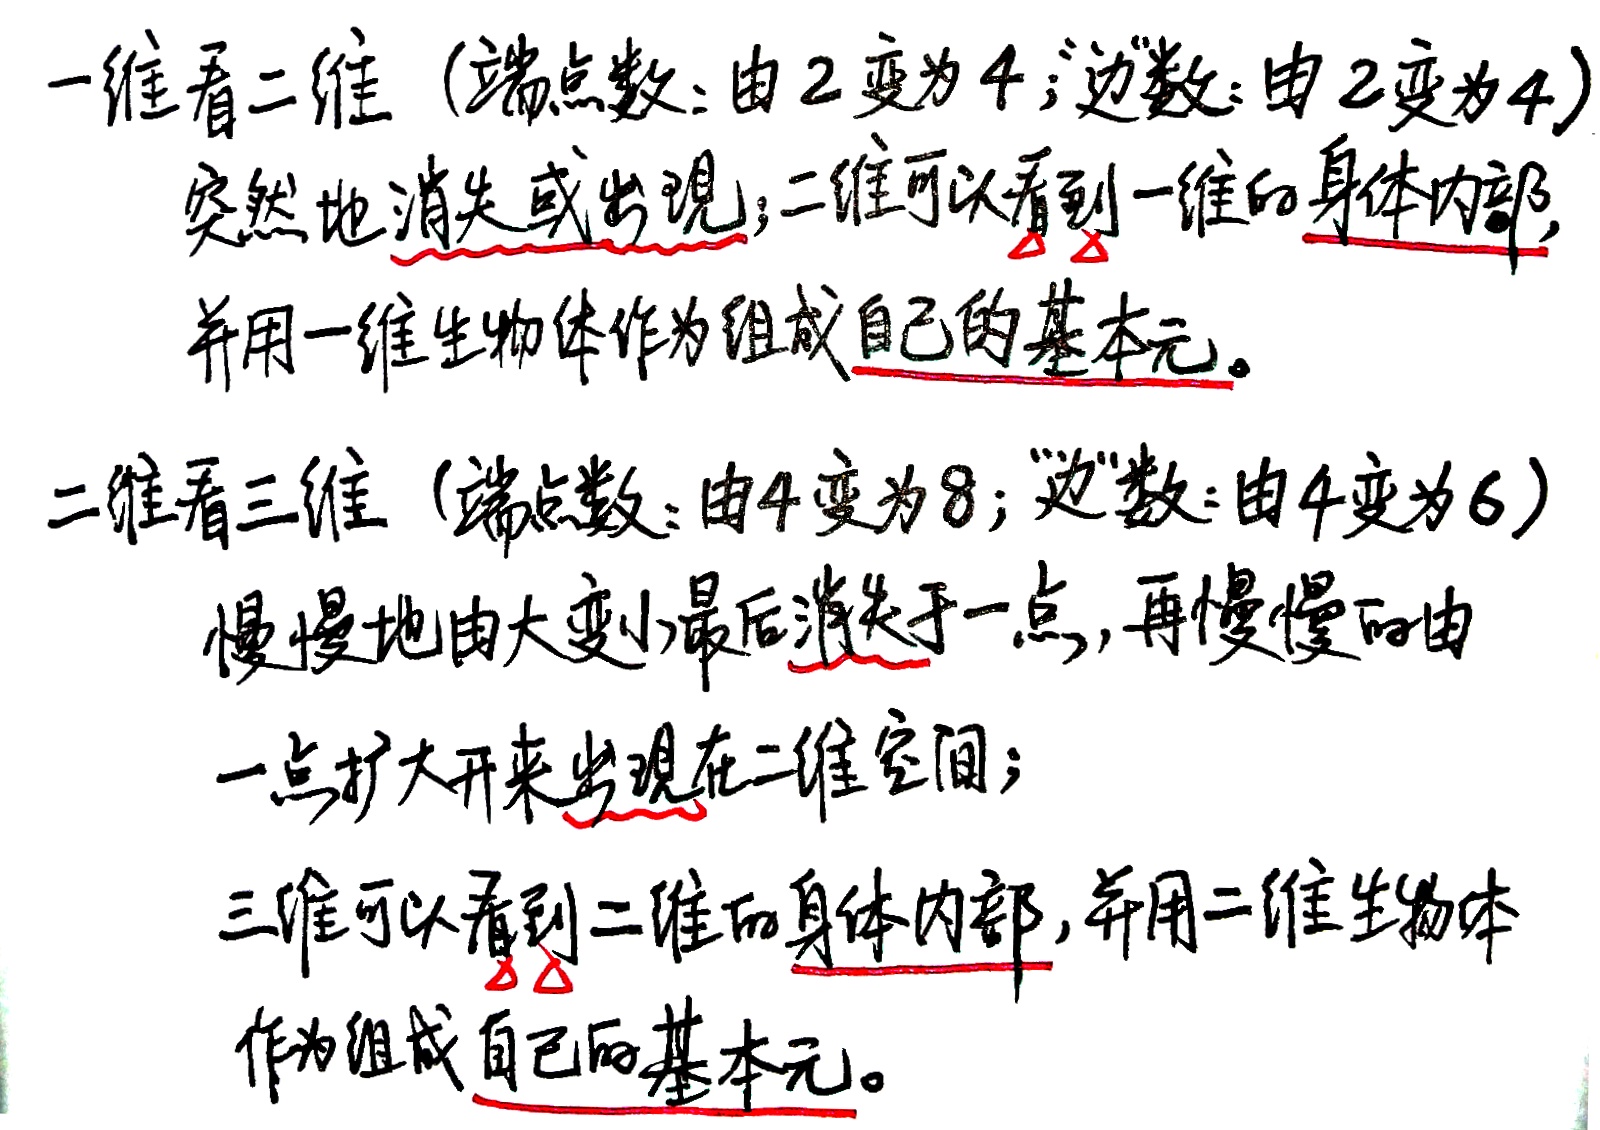 一维看二维（端点数：由2变为4；“边”数：由2变为4）
突然地消失或出现；二维可以看到一维的身体内部，
并用一维生物体作为组成自己的基本元。
二维看三维（端点数：由4变为8；“边”数：由4变为6）
慢慢地由大变小最后消失于一点，再慢慢的由
一点扩大开来出现在二维空间；
三维可以看到二维的身体内部，并用二维生物体
作为组成自己的基本元。